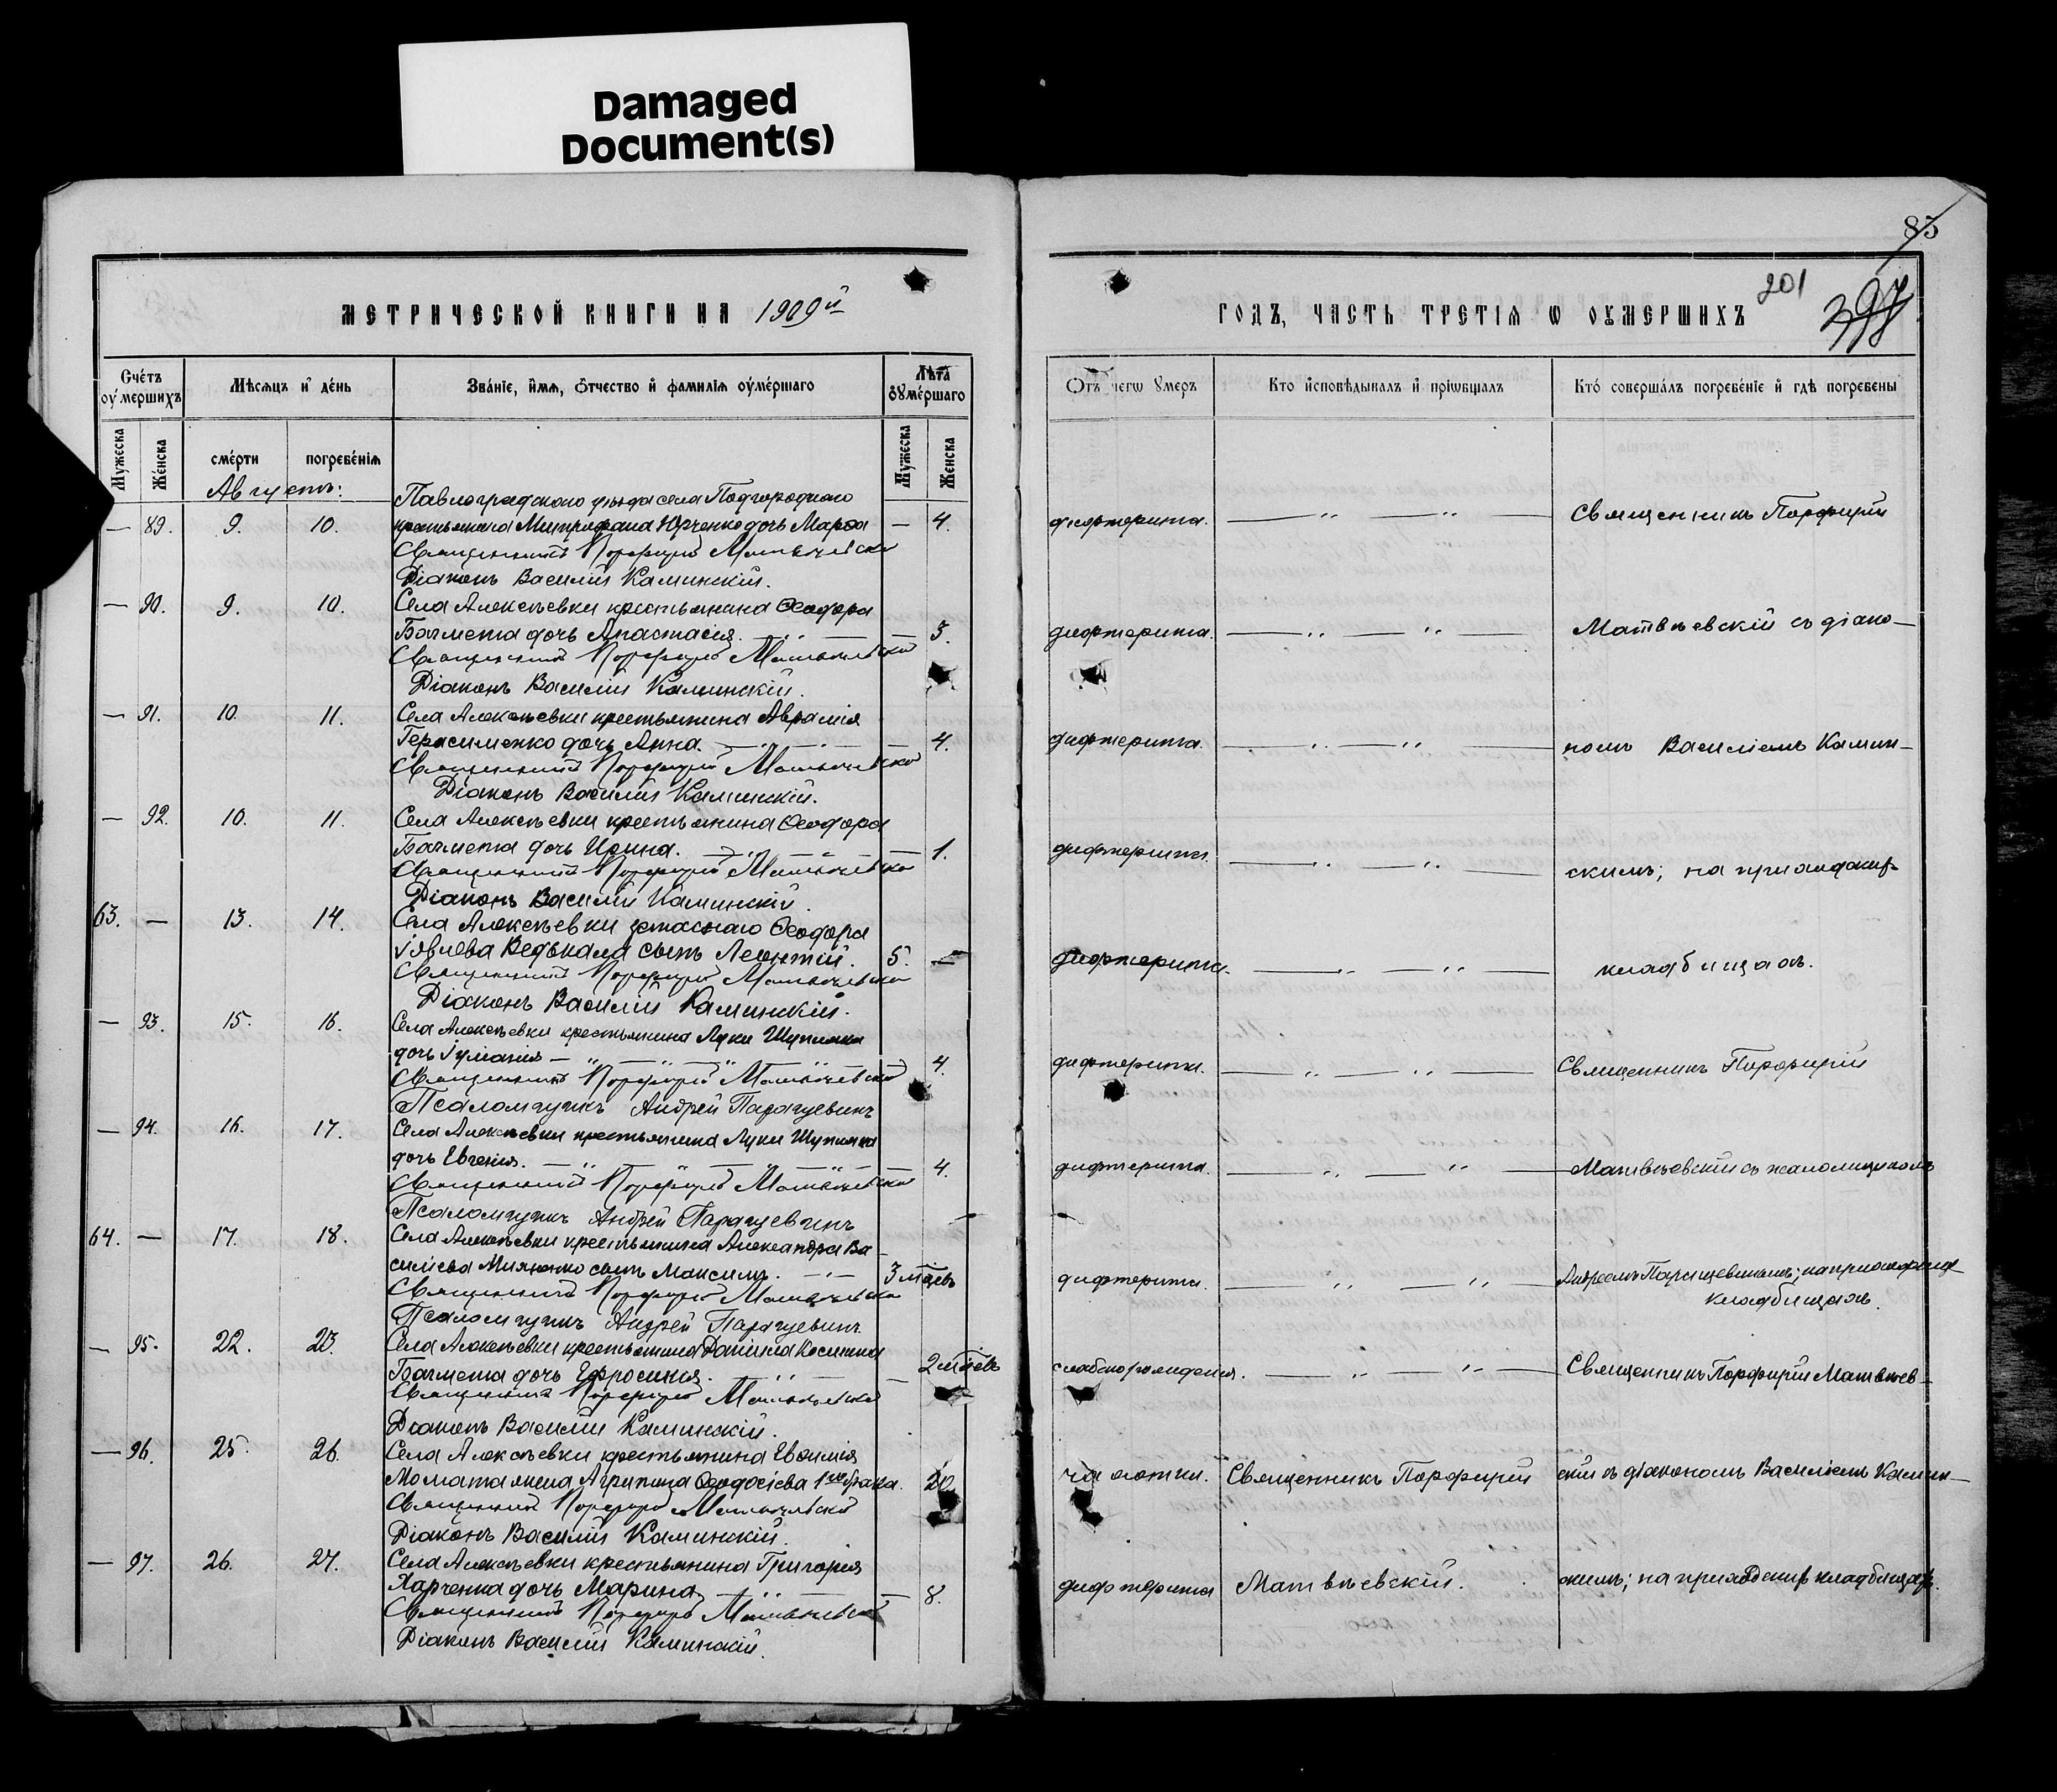 Damaged
Document(s)
83
201
397
МЕТРИЧЕСКОЙ КНИГИ НА 1909й
ГОДЪ, ЧАСТЬ ТРЕТІЯ Ѡ ОУМЕРШИХЪ
Счéтъ оумершихъ
Мѣсяцъ и дéнь
Звáніе, имя, óтчество и фамилія оумéршаго
Лѣта оумéршаго
Отъ чегѡ умеръ
Кто исповѣдывалъ и пріѡбщалъ
Ктó совершáлъ погребéніе и гдѣ погребены
Мужеска
Жéнска
смéрти
погребéнія
Мужеска
Женска
Августъ:
Павлоградскаго уѣзда села Подгороднаго
— 89. 9. 10. крестьянина Митрофана Юрченко дочь Марѳа — 4. дифтерита. Священникъ Порфирій
Священникъ Порфирій Матвѣевскій
Діаконъ Василій Каминскій.
— 90. 9. 10. Села Алексѣевки крестьянина Ѳеодора
Багмета дочь Анастасія. — 3. дифтерита. Матвѣевскій съ діако-
Священникъ Порфирій Матвѣевскій
Діаконъ Василій Каминскій.
— 91. 10. 11. Села Алексѣевки крестьянина Аврамія
Герасименко дочь Анна. — 4. дифтерита. номъ Василіемъ Камин-
Священникъ Порфирій Матвѣевскій
Діаконъ Василій Каминскій.
— 92. 10. 11. Села Алексѣевки крестьянина Ѳеодора
Багмета дочь Ирина. — 1. дифтерита. скимъ; на приходскир-
Священникъ Порфирій Матвѣевскій
Діаконъ Василій Каминскій.
63. — 13. 14. Села Алексѣевки Ѳеодора
Іовлева сынъ Леонтій. 5. — дифтерита. кладбищахъ.
Священникъ Порфирій Матвѣевскій
Діаконъ Василій Каминскій.
— 93. 15. 16. Села Алексѣевки крестьянина Луки Шупляка
дочь Іуліанія — 4. дифтерита. Священникъ Порфирій
Священникъ Порфирій Матвѣевскій
Псаломщикъ Андрей
— 94. 16. 17. Села Алексѣевки крестьянина Луки Шупляка
дочь Евгенія. — 4. дифтерита. Матвѣевскій съ
Священникъ Порфирій Матвѣевскій
Псаломщикъ Андрей
64. — 17. 18. Села Алексѣевки крестьянина Александра Ва-
силіева сынъ Максимъ. 3 мѣсяцъ дифтерита. Андреемъ
кладбищахъ.
Священникъ Порфирій Матвѣевскій
Псаломщикъ Андрей
— 95. 22. 23. Села Алексѣевки крестьянина Даніила Космина
Багмета дочь Ефросинія. — 2 мѣсяцъ слабкорожденія. Священникъ Порфирій Матвѣев-
Священникъ Порфирій Матвѣевскій
Діаконъ Василій Каминскій.
— 96. 25. 26. Села Алексѣевки крестьянина Евѳимія
жена Агрипина Ѳеодосіева 1го брака. 20 чахотки. Священникъ Порфирій скій съ діакономъ Василіемъ Камин-
Священникъ Порфирій Матвѣевскій
Діаконъ Василій Каминскій.
— 97. 26. 27. Села Алексѣевки крестьянина Григорія
Харченка дочь Марина — 8. дифтерита Матвѣевскій. скимъ; на приходскир кладбищахъ.
Священникъ Порфирій Матвѣевскій
Діаконъ Василій Каминскій.